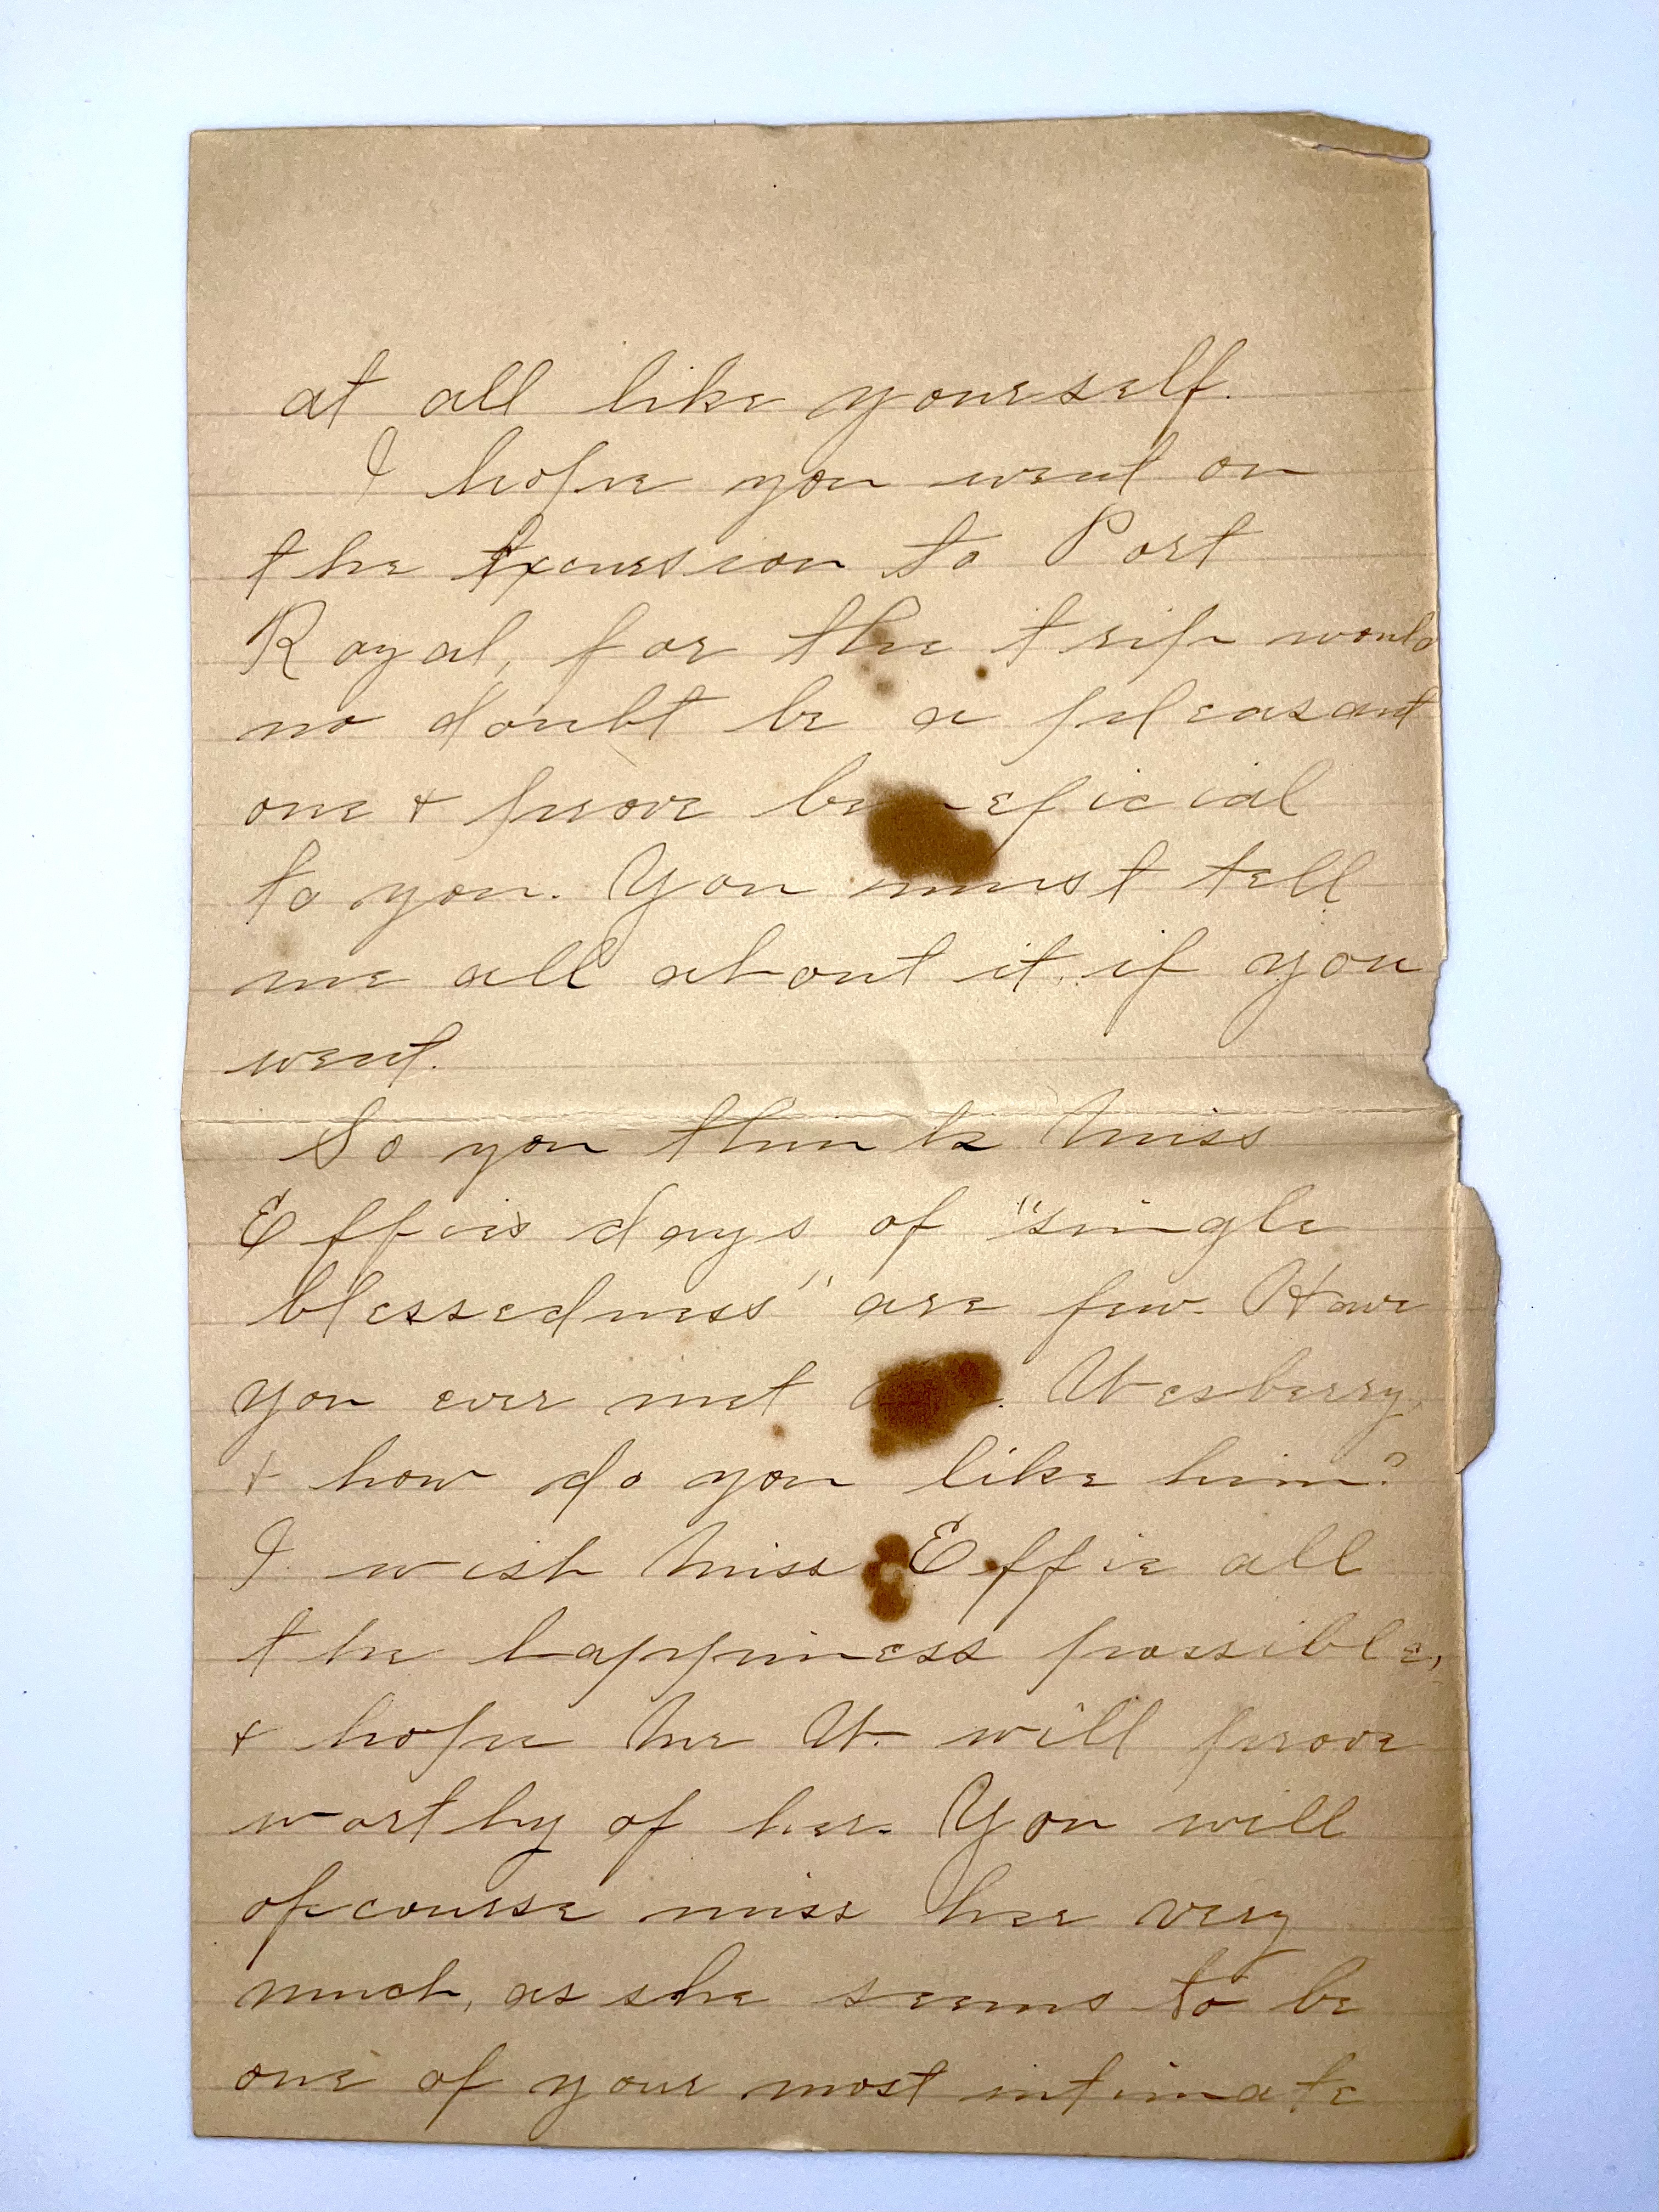 at all like yourself.
I hope you went on
the Excursion to Port
Royal, for the trip would
no doubt be a pleasant
one & prove beneficial
to you. You must tell
me all about it, if you
went.
So you think Miss
Effies days of "single
blessedness" are few. Have
you ever met Wesberry,
& how do you like him?
I wish Miss Effie all
the happiness possible,
& hope Mr W. will prove
worthy of her. You will
ofcourse miss her very
much, as she seems to be
one of your most intimate